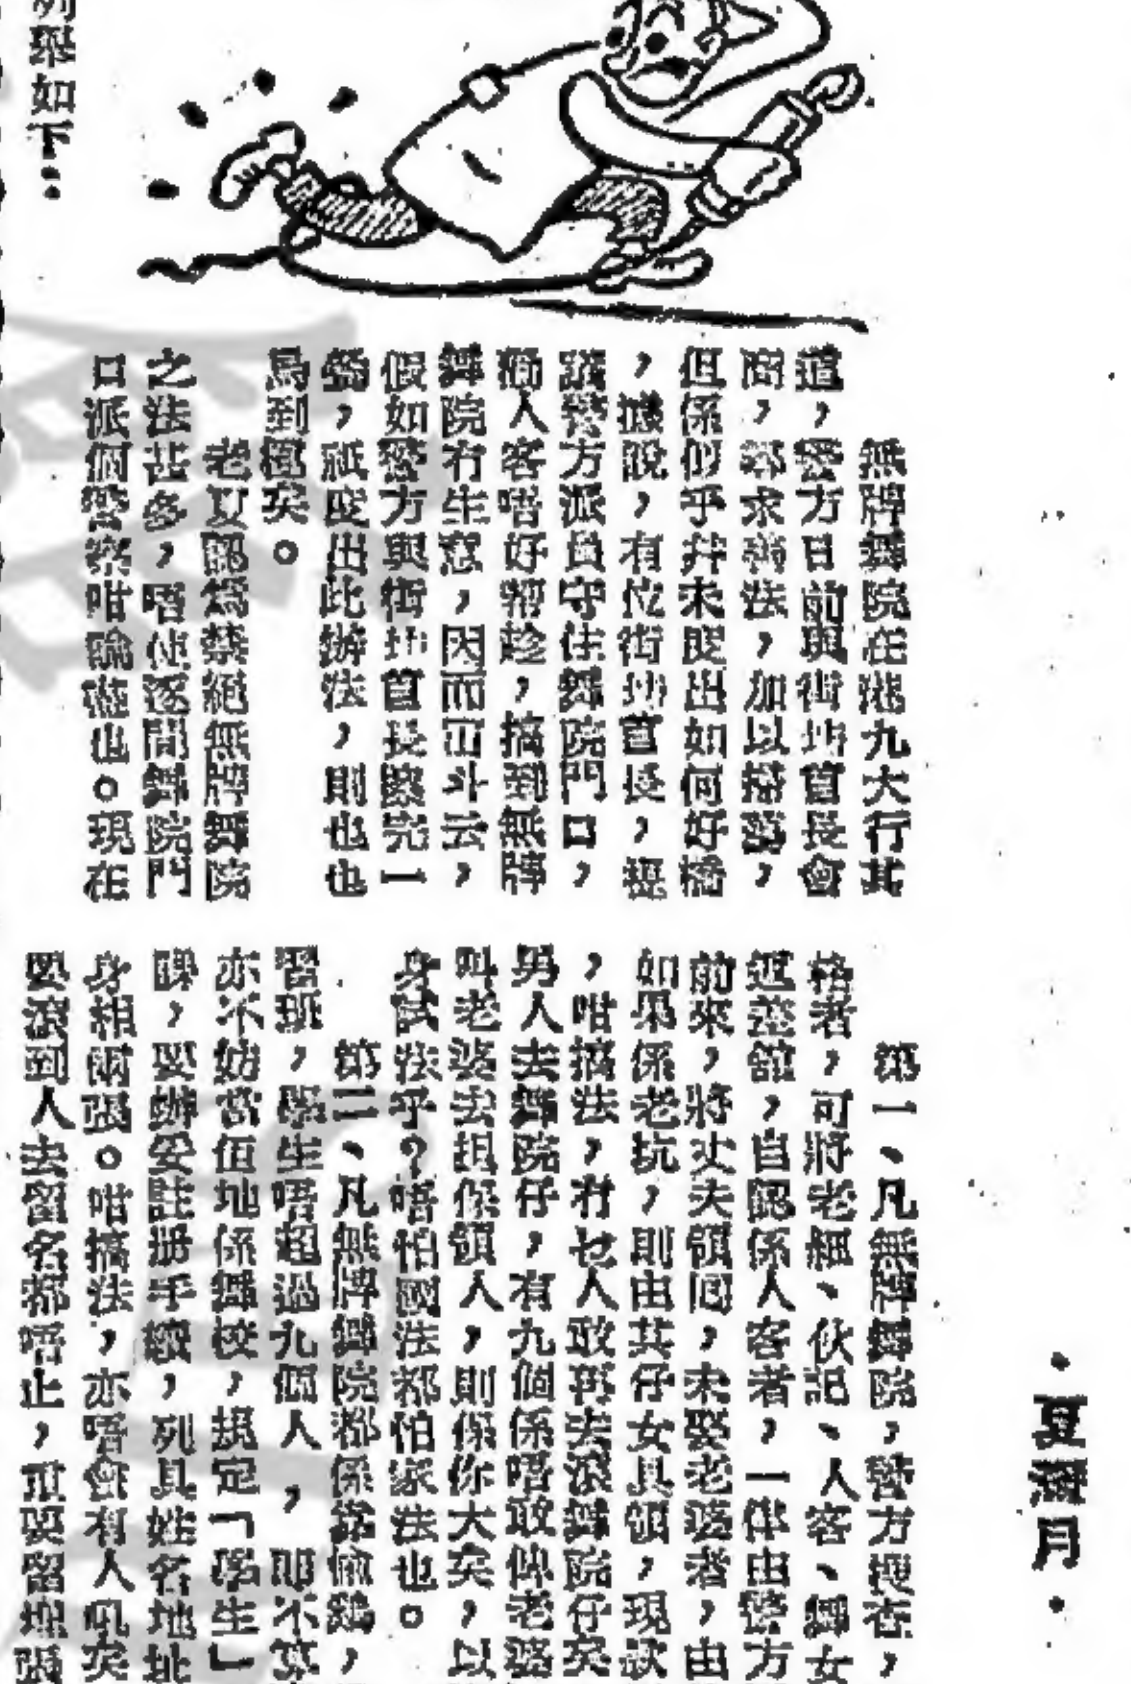 ·夏霜月·
無牌舞院在港九大行其
道，警方日前與街坊首長會
商，尋求辦法，加以掃蕩，
但係似乎并未度出如何好橋
，據說，有位街坊首長，提
議警方派員守住舞院門口，
渐人客唔好幫趁，搞到無牌
舞院冇生意，因而冚斗云，
假如警方與街坊首長度完一
餐，祇度出此辦法，則也也
烏到極矣。
老夏認為禁絕無牌舞院
之法甚多，唔使逐間舞院門
口派個警察咁論盡也。現在
列舉如下：
第一、凡無牌舞院，警方搜查，
格者，可將老細、伙記、人客、舞女
返差館，自認係人客者，一律由警方
前來，將丈夫領回，未娶老婆者，由
如果係老坑，則由其仔女具領，現款
，咁搞法，冇乜人敢再去滾舞院仔矣
男人去舞院仔，有九個係唔敢俾老婆
叫老婆去担保領人，則係你大矣，以
身試法乎？唔怕國法都怕家法也。
第二、凡無牌舞院都係當偷鷄，
習班，學生唔超過九個人，即不算
亦不妨當佢地係舞校，規定「學生」
課，要辦妥註册手續，列具姓名地址
身相兩張。咁搞法，亦唔會有人吼矣
要滾到人去留名都唔止，重要留埋張